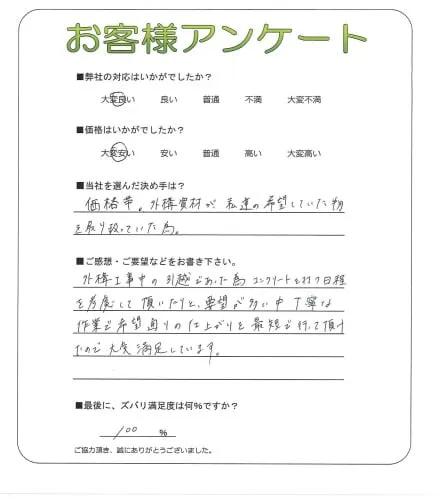 お客様アンケート
■弊社の対応はいかがでしたか？
大変良い 良い 普通 不満 大変不満
■価格はいかがでしたか？
大変安い 安い 普通 高い 大変高い
■当社を選んだ決め手は？
価格帯。外構資材が私達の希望していた物
を取り扱っていた為。
■ご感想・ご要望などをお書き下さい。
外構工事中の引越であった為コンクリートを打つ日程
を考慮して頂いたりと、要望が多い中丁寧な
作業で希望通りの仕上がりを最短で行って頂け
たので大変満足しています。
■最後に、ズバリ満足度は何％ですか？
100 ％
ご協力頂き、誠にありがとうございました。